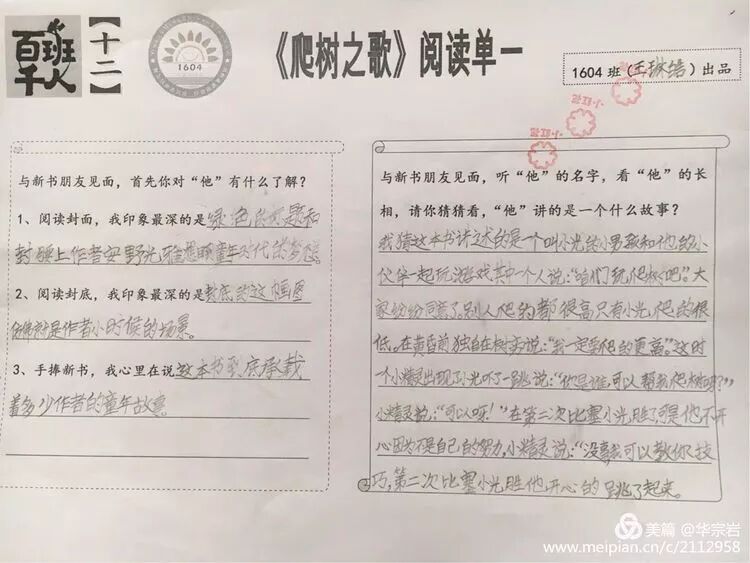 百班千人
【十二】
1604
《爬树之歌》阅读单一
1604班（王琳皓）出品
与新书朋友见面，首先你对“他”有什么了解？
1、阅读封面，我印象最深的是绿色的标题和
封腰上作者安野光雅想画童年时代的梦想。
2、阅读封底，我印象最深的是封底的这幅图
仿佛就是作者小时候的场景。
3、手捧新书，我心里在说这本书到底承载
着多少作者的童年故事
与新书朋友见面，听“他”的名字，看“他”的长
相，请你猜猜看，“他”讲的是一个什么故事？
我猜这本书讲述的是一个叫小光的小男孩和他的小
伙伴一起玩游戏其中一个人说：“咱们玩爬树吧。”大
家纷纷同意了。别人爬的都很高只有小光爬的很
低。在黄昏前独自在树旁说：“我一定要爬的更高。”这时
一个小精灵出现了小光吓了一跳说：“你是谁，可以帮我爬树呀？”
小精灵说：“可以呀！”在第二次比赛小光胜了，可是他不开
心因为不是自己的努力，小精灵说：“没事我可以教你技
巧，第二次比赛小光胜他开心的跳了起来。
美篇 @华宗岩
www.meipian.cn/c/2112958